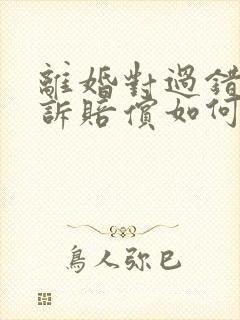 離婚對過錯
訴賠償如何
鳥人弥巳